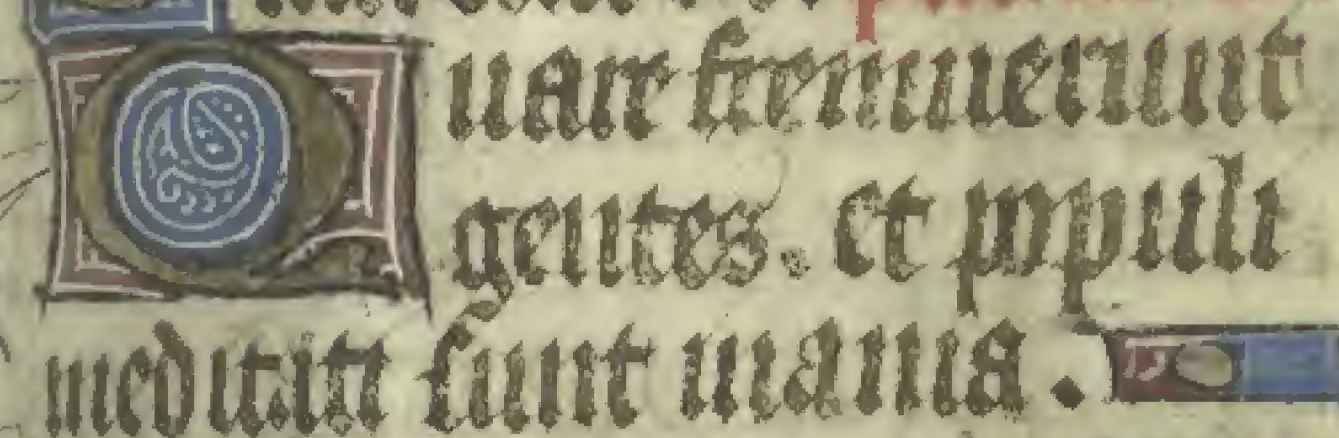 Quare fremuerunt
gentes. et populi
meditati sunt inania.